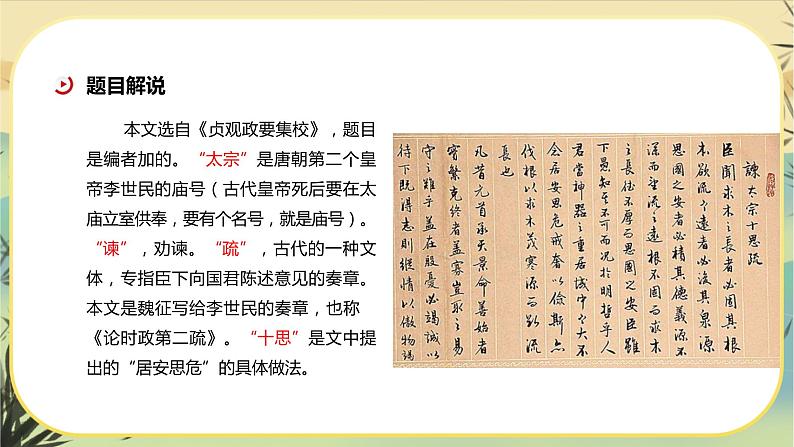 题目解说
本文选自《贞观政要集校》，题目
是编者加的。“太宗”是唐朝第二个皇
帝李世民的庙号（古代皇帝死后要在太
庙立室供奉，要有个名号，就是庙号）。
“谏”，劝谏。“疏”，古代的一种文
体，专指臣下向国君陈述意见的奏章。
本文是魏征写给李世民的奏章，也称
《论时政第二疏》。“十思”是文中提
出的“居安思危”的具体做法。
諫太宗十思疏
臣聞求木之長者必固其根
本欲流之遠者必浚其泉源
思國之安者必積其德義源不
深而望流之遠根不固而求木
之長德不厚而思國之安臣雖
下愚知其不可而況於明哲乎人
君當神器之重居域中之大不
念居安思危戒奢以儉斯亦
伐根以求木茂塞源而欲流
長也
凡昔元首承天景命善始者
實繁克終者蓋寡豈取之易
守之難乎蓋在殷憂必竭誠以
待下既得志則縱情以傲物竭